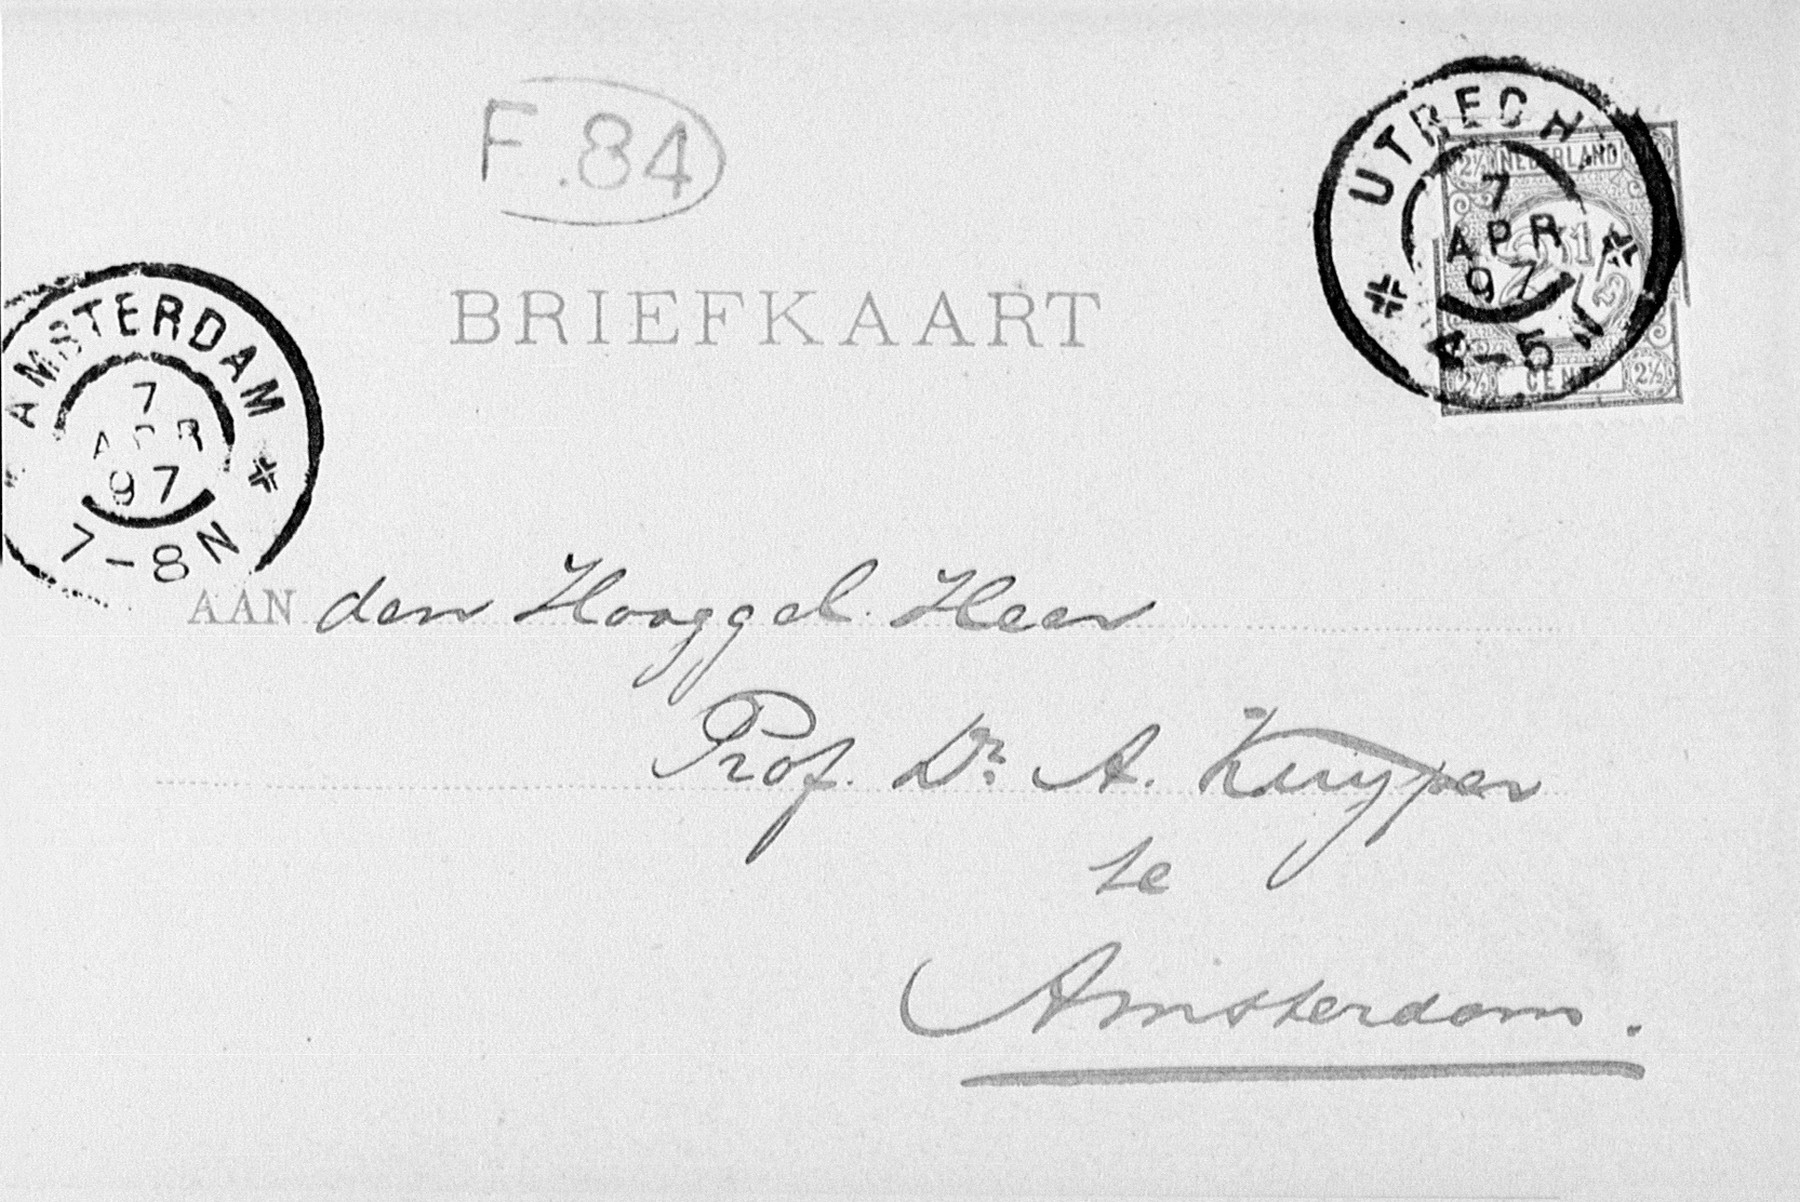 F.84
UTRECHT
7
APR
97
4-5N
NEDERLAND
2½
2½
CENT.
2½
BRIEFKAART
AMSTERDAM
7
APR
97
7-8N
AAN den Hooggel. Heer
Prof. Dr. A. Kuyper
te
Amsterdam.